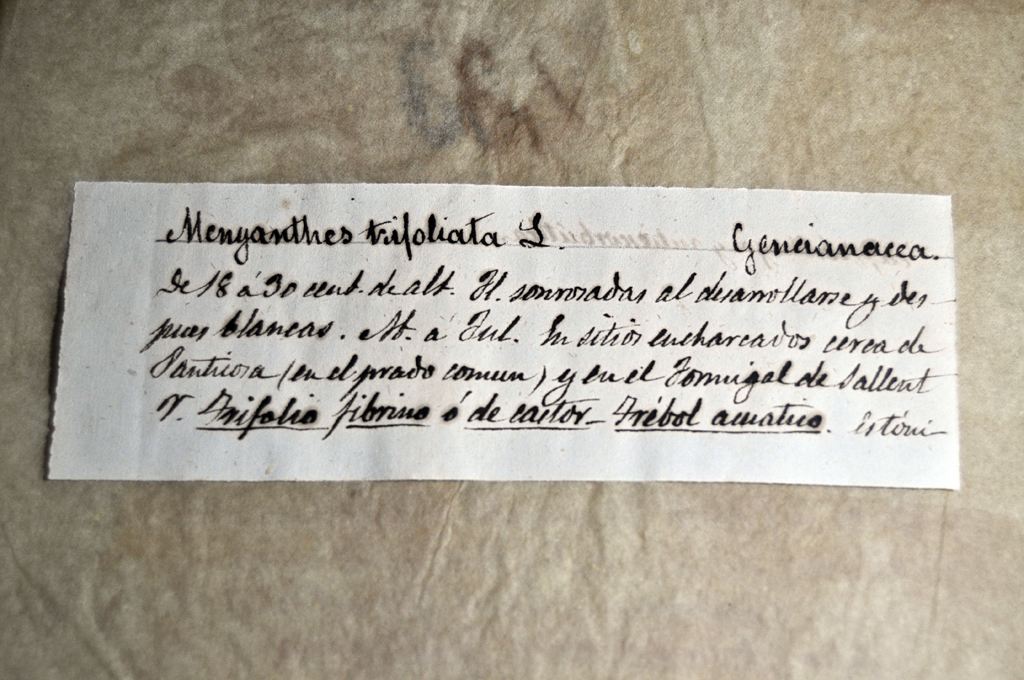 Menyanthes trifoliata L. Gencianacea.
de 18 á 30 cent. de alt. Fl. sonrosadas al desarrollarse y des-
pues blancas. Ab. á Jul. En sitios encharcados cerca de
Panticosa (en el prado comun) y en el Formigal de Sallent
V. Trifolio fibrino ó de castor - Trébol acuatico. Es tóni-